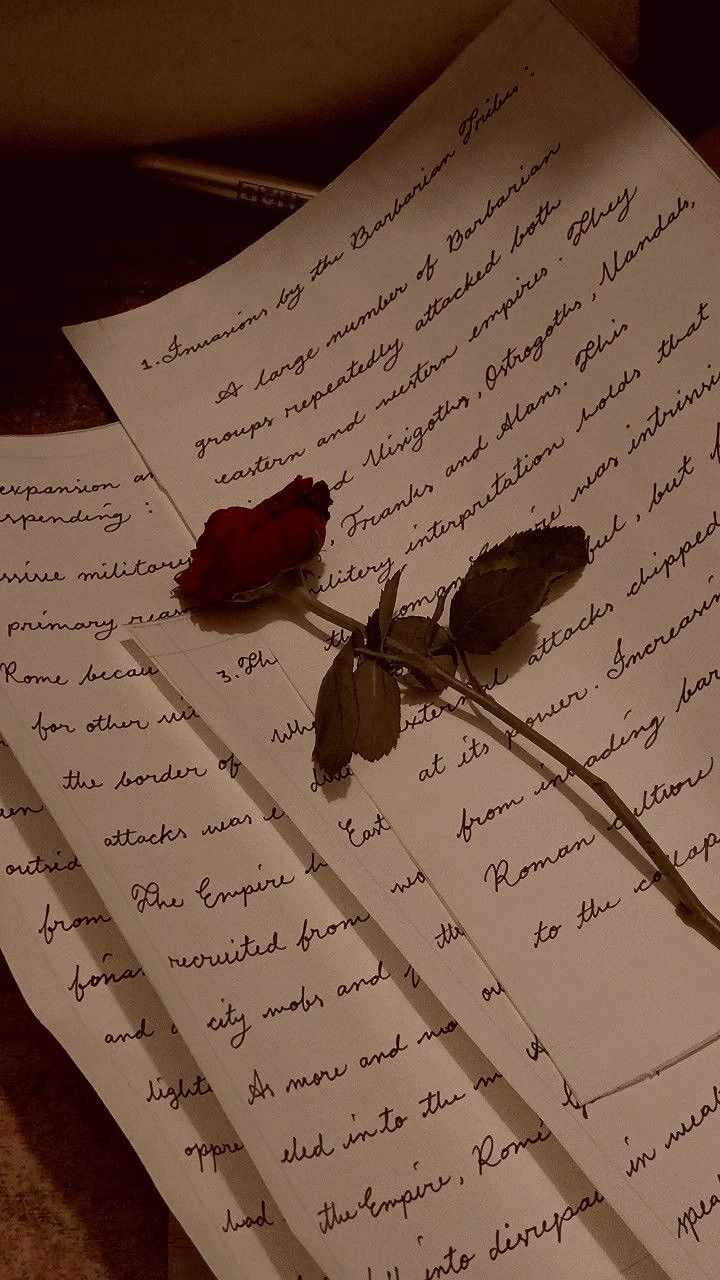 1. Invasions by the Barbarian Tribes:
A large number of Barbarian
groups repeatedly attacked both
eastern and western empires. They
Visigoths, Ostrogoths, Vandals,
Franks and Alans. This
military interpretation holds that
the Roman was intrinsi
ful, but
external attacks chipped
at its power. Increasin
from invading bar
Roman culture
to the collap
expansion a
spending:
ssive military
primary reas
Rome becau
for other
the border of
attacks was
The Empire
recruited from
city mobs and
As more and mo
eled into the m
the Empire, Rome
into disrepai
3. Th
Whe
East
wo
the
ou
in weal
spea
outsid
from
and
light
oppre
had